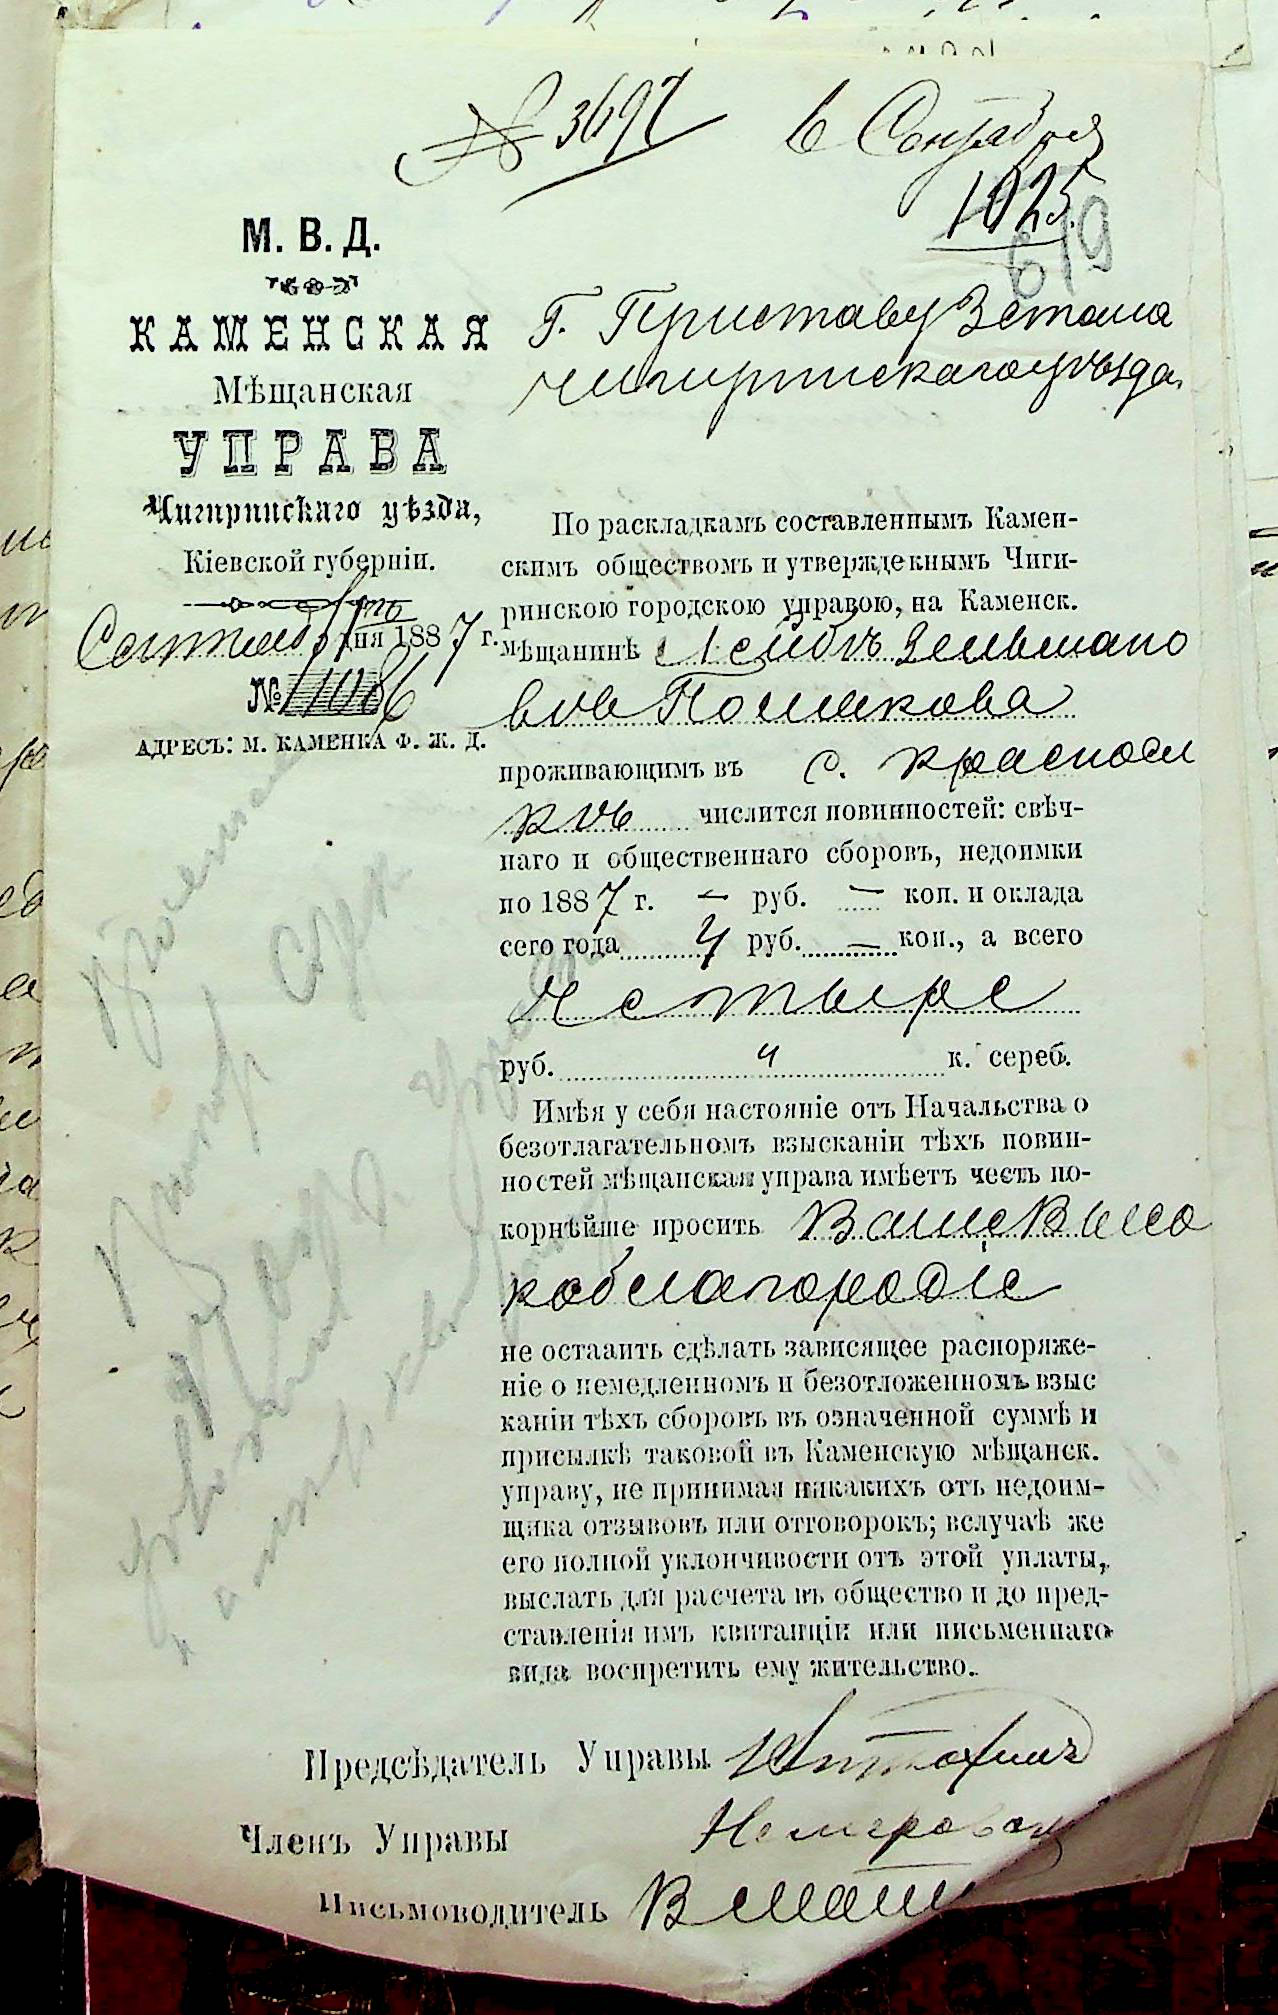 № 3697
6 Сентября
1025
619
М. В. Д.
КАМЕНСКАЯ
Мѣщанская
УПРАВА
Чигиринскаго уѣзда,
Кіевской губерніи.
Сентября дня 1887 г.
№ 11086
АДРЕСЪ: М. КАМЕНКА Ф. Ж. Д.
Г. Приставу 3 стана
Чигиринскаго уѣзда.
По раскладкамъ составленнымъ Камен-
скимъ обществомъ и утвержденнымъ Чиги-
ринскою городскою управою, на Каменск.
мѣщанинѣ Лейбѣ Зельмано
вов Полякова
проживающимъ въ с. Красносіл
кѣ числится повинностей: свѣч-
наго и общественнаго сборовъ, недоимки
по 1887 г. — руб. — коп. и оклада
сего года 4 руб. — коп., а всего
Четыре
руб. 4 к. сереб.
Имѣя у себя настояніе отъ Начальства о
безотлагательномъ взысканіи тѣхъ повин-
ностей мѣщанская управа имѣетъ честь по-
корнѣйше просить Ваше Высо
коблагородіе
не остаить сдѣлать зависящее распоряже-
ніе о немедленномъ и безотложенномъ взыс
каніи тѣхъ сборовъ въ означенной суммѣ и
присылкѣ таковой въ Каменскую мѣщанск.
управу, не принимая никакихъ отъ недоим-
щика отзывовъ или отговорокъ; вслучаѣ же
его полной уклончивости отъ этой уплаты,
выслать для расчета въ общество и до пред-
ставленія имъ квитанціи или письменнаго
вида воспретить ему жительство.
Предсѣдатель Управы
Членъ Управы
Письмоводитель